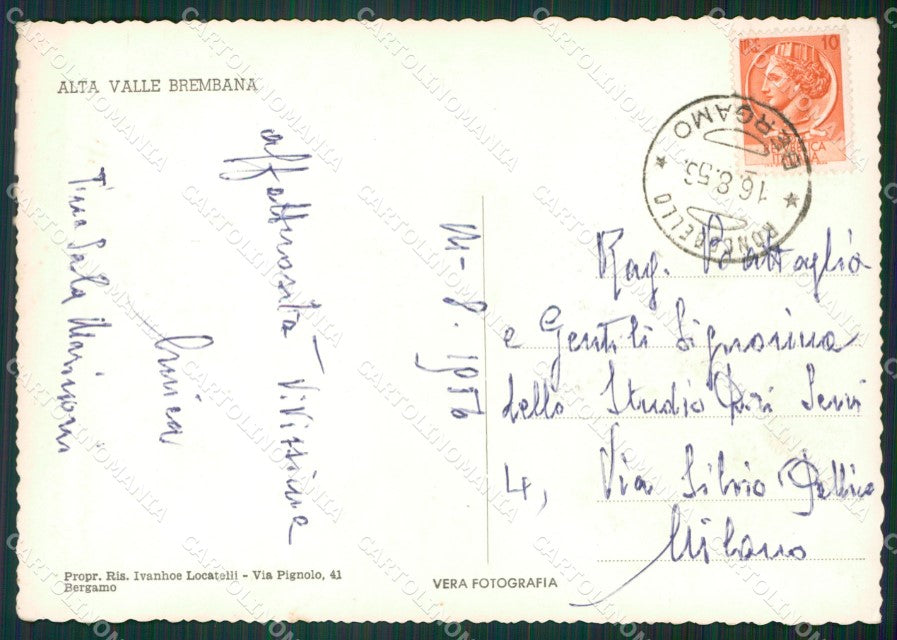 ALTA VALLE BREMBANA
affettuosità Vivissime
Tina Sala Marinoni
8.1956
Rag. Battaglia
e Gentili Signorine
dello Studio Dori Servi
4, Via Silvio Pellico
Milano
10
REPUBBLICA
ITALIANA
BERGAMO
16.8.56
RONCOBELLO
Propr. Ris. Ivanhoe Locatelli - Via Pignolo, 41
Bergamo
VERA FOTOGRAFIA
CARTOLINOMANIA